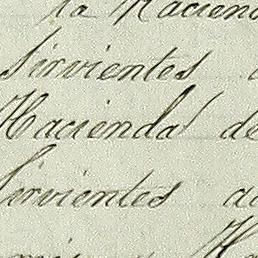 la Haciend
Sirvientes a
Hacienda de
Sirvientes ad